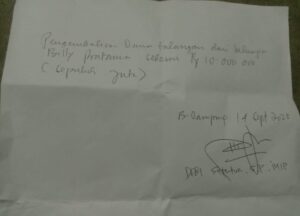 Pengembalian Dana talangan dari keluarga
Billy Pratama sebesar Rp 10.000.000
(sepuluh juta)
B. Lampung, 14 Sept 2025
DEBI